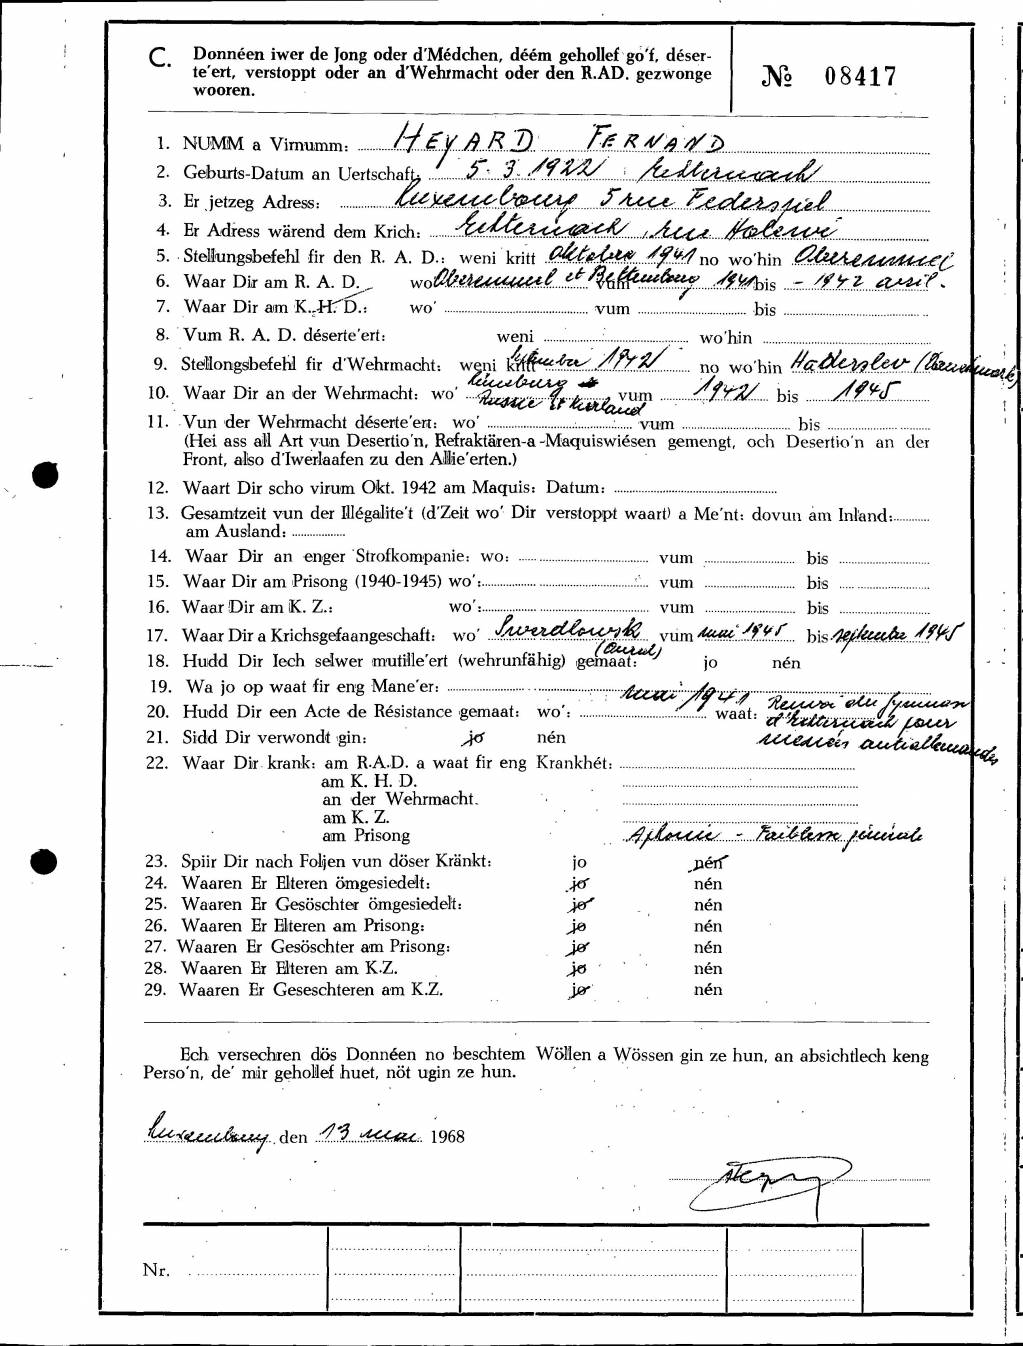 C. Donnéen iwer de Jong oder d'Médchen, déém gehollef go'f, déser-
te'ert, verstoppt oder an d'Wehrmacht oder den R.AD. gezwonge
wooren.
№ 08417
1. NUMM a Virnumm: HEYARD FERNAND
2. Geburts-Datum an Uertschaft: 5. 3. 1922 Echternach
3. Er jetzeg Adress: Luxembourg 5 rue Federspiel
4. Er Adress wärend dem Krich: Echternach, rue Halewé
5. Stellungsbefehl fir den R. A. D.: weni kritt Oktobre 1941 no wo'hin Oberemmel
6. Waar Dir am R. A. D. wo Oberemmel et Bettembourg vum 1941 bis - 1942 avril.
7. Waar Dir am K. H. D.: wo' vum bis
8. Vum R. A. D. déserte'ert: weni wo'hin
9. Stellongsbefehl fir d'Wehrmacht: weni kritt septembre 1942 no wo'hin Haderslev (Danemark)
10. Waar Dir an der Wehrmacht: wo' Lüneburg Russie et Kurland vum 1942 bis 1945
11. Vun der Wehrmacht déserte'ert: wo' vum bis
(Hei ass all Art vun Desertio'n, Refraktären-a-Maquiswiésen gemengt, och Desertio'n an der
Front, also d'Iwerlaafen zu den Allie'erten.)
12. Waart Dir scho virum Okt. 1942 am Maquis: Datum:
13. Gesamtzeit vun der Illégalite't (d'Zeit wo' Dir verstoppt waart) a Me'nt: dovun am Inland:
am Ausland:
14. Waar Dir an enger Strofkompanie: wo: vum bis
15. Waar Dir am Prisong (1940-1945) wo': vum bis
16. Waar Dir am K. Z.: wo': vum bis
17. Waar Dir a Krichsgefaangeschaft: wo' Swerdlowsk (Oural) vum mai 1945 bis septembre 1945
18. Hudd Dir Iech selwer mutille'ert (wehrunfähig) gemaat: jo nén
19. Wa jo op waat fir eng Mane'er:
20. Hudd Dir een Acte de Résistance gemaat: wo': mai 1941 waat: Renvoi du
d'Echternach pour
menées antiallemandes
21. Sidd Dir verwondt gin: jo nén
22. Waar Dir krank: am R.A.D. a waat fir eng Krankhét:
am K. H. D.
an der Wehrmacht.
am K. Z.
am Prisong Aphonie - Faiblesse générale
23. Spiir Dir nach Foljen vun döser Kränkt: jo nén
24. Waaren Er Elteren ömgesiedelt: jo nén
25. Waaren Er Gesöschter ömgesiedelt: jo nén
26. Waaren Er Elteren am Prisong: jo nén
27. Waaren Er Gesöschter am Prisong: jo nén
28. Waaren Er Elteren am K.Z. jo nén
29. Waaren Er Geseschteren am K.Z. jo nén
Ech versechren dös Donnéen no beschtem Wöllen a Wössen gin ze hun, an absichtlech keng
Perso'n, de' mir gehollef huet, nöt ugin ze hun.
Luxembourg, den 13 mai 1968
Nr.